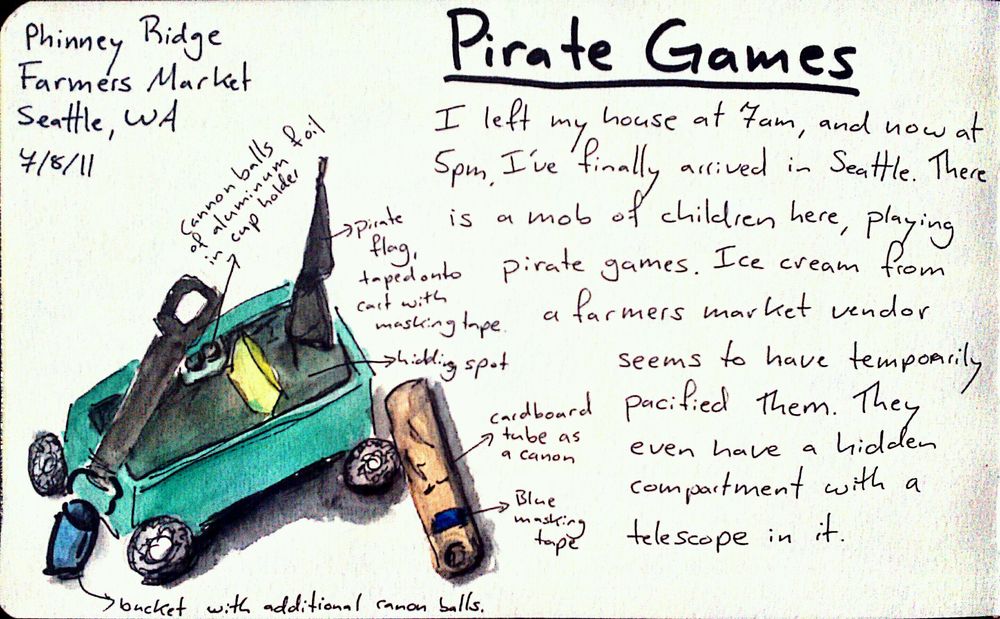 Phinney Ridge
Farmers Market
Seattle, WA
7/8/11
Pirate Games
I left my house at 7am, and now at
5pm, I've finally arrived in Seattle. There
is a mob of children here, playing
pirate games. Ice cream from
a farmers market vendor
seems to have temporarily
pacified them. They
even have a hidden
compartment with a
telescope in it.
cannon balls
of aluminum foil
in cup holder
pirate
flag,
taped onto
cart with
masking tape.
hidding spot
cardboard
tube as
a canon
Blue
masking
tape
bucket with additional canon balls.